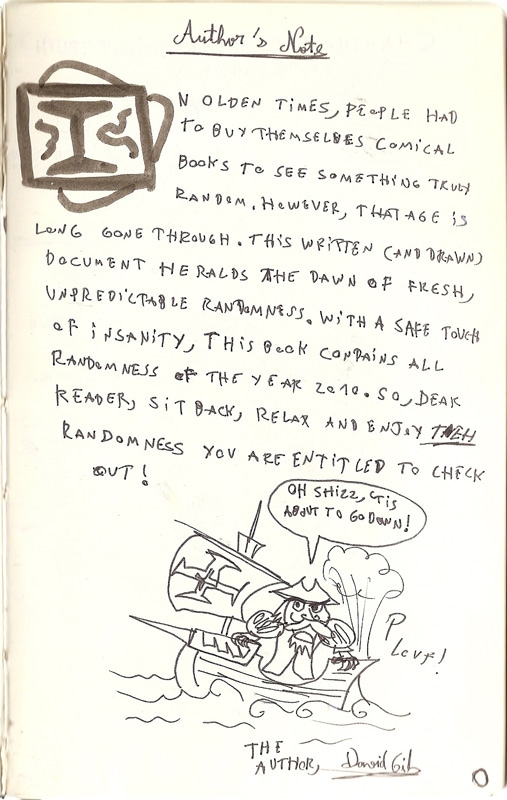 Author's Note
IN OLDEN TIMES, PEOPLE HAD
TO BUY THEMSELBES COMICAL
BOOKS TO SEE SOMETHING TRULY
RANDOM. HOWEVER, THAT AGE IS
LONG GONE THROUGH. THIS WRITTEN (AND DRAWN)
DOCUMENT HERALDS THE DAWN OF FRESH,
UNPREDICTABLE RANDOMNESS. WITH A SAFE TOUCH
OF INSANITY, THIS BOOK CONTAINS ALL
RANDOMNESS OF THE YEAR 2010. SO, DEAR
READER, SIT BACK, RELAX AND ENJOY TEH
RANDOMNESS YOU ARE ENTITLED TO CHECK
OUT!
OH SHIZZ, 'TIS
ABOUT TO GO DOWN!
THE
AUTHOR,
0